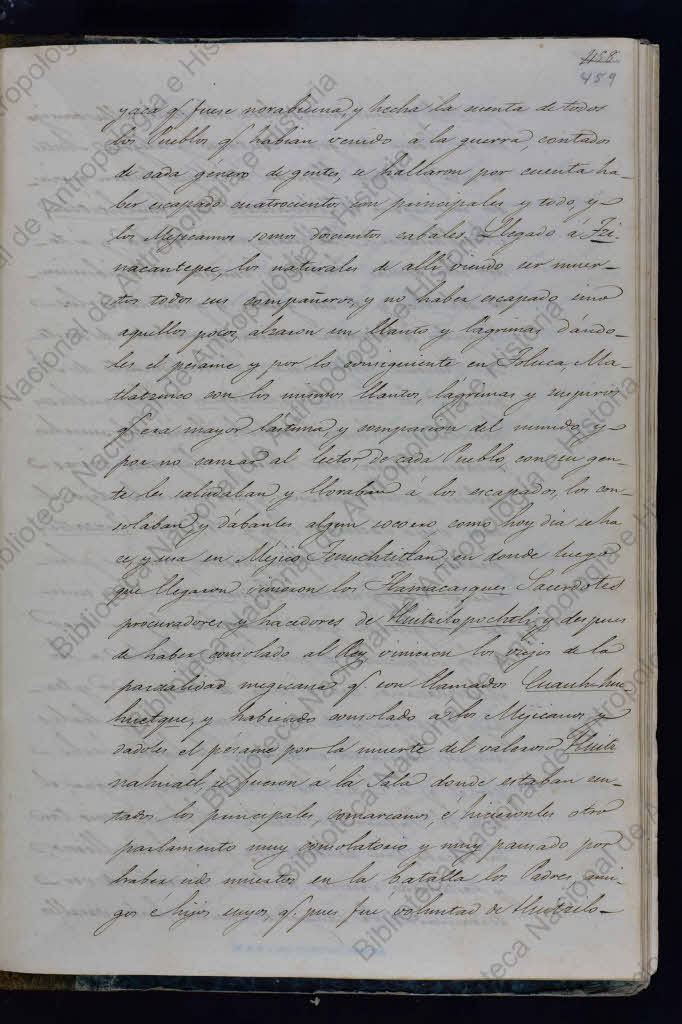 458
459
yaca q. fuese norabuena, y hecha la cuenta de todos
los Pueblos q. habian venido a la guerra, contados
de cada género de gentes, se hallaron por cuenta ha-
ber escapado cuatrocientos con principales y todo, y
los Mejicanos somos doscientos cabales. Llegado á Tzi-
nacantepec, los naturales de allí viendo ser muer-
tos todos sus compañeros, y no haber escapado sino
aquellos pocos, alzaron un llanto y lágrimas dándo-
les el pésame y por lo consiguiente en Toluca, Ma-
tlatzinco con los mismos llantos, lágrimas y suspiros
q. era mayor lástima, y compasion del mundo, y
por no cansar al lector, de cada Pueblo, con su gen-
te les saludaban y lloraban á los escapados, los con-
solaban, y dábanles algun socorro, como hoy dia se ha-
ce, y usa en Méjico Tenuchtitlan, en donde luego
que llegaron vinieron los Tlamacasques Sacerdotes
procuradores y hacedores de Huitzilopochtli, y despues
de haber consolado al Rey vinieron los viejos de la
parcialidad megicana q. son llamados Cuauhhue-
huetque, y habiendo consolado a los Mejicanos, y
dadoles el pésame por la muerte del valeroso Huitz
nahuatl, se fueron a la Sala donde estaban sen-
tados los principales, comarcanos, é hicieronles otro
parlamento muy consolatorio y muy pausado por
haber sido muertos en la batalla los Padres, ami-
gos é hijos suyos, q. pues fué voluntad de Huitzilo-
Biblioteca Nacional de Antropología e Historia